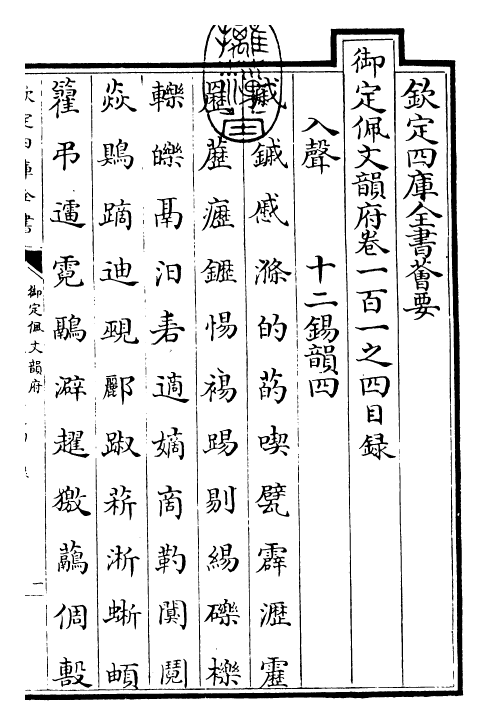 欽定四庫全書薈要
御定佩文韻府卷一百一之四目録
入聲　十二錫韻四
鏚慼滌的菂喫甓霹瀝靂
藶癧鑩惕裼踢剔緆礫櫟
轢皪鬲汨砉適嫡啇靮闃鬩
焱鶪蹢迪覡酈踧菥淅蜥𩓥
籊弔逋霓鷊澼趯獥虉倜毄
欽定四庫全書
御定佩文韻府
一